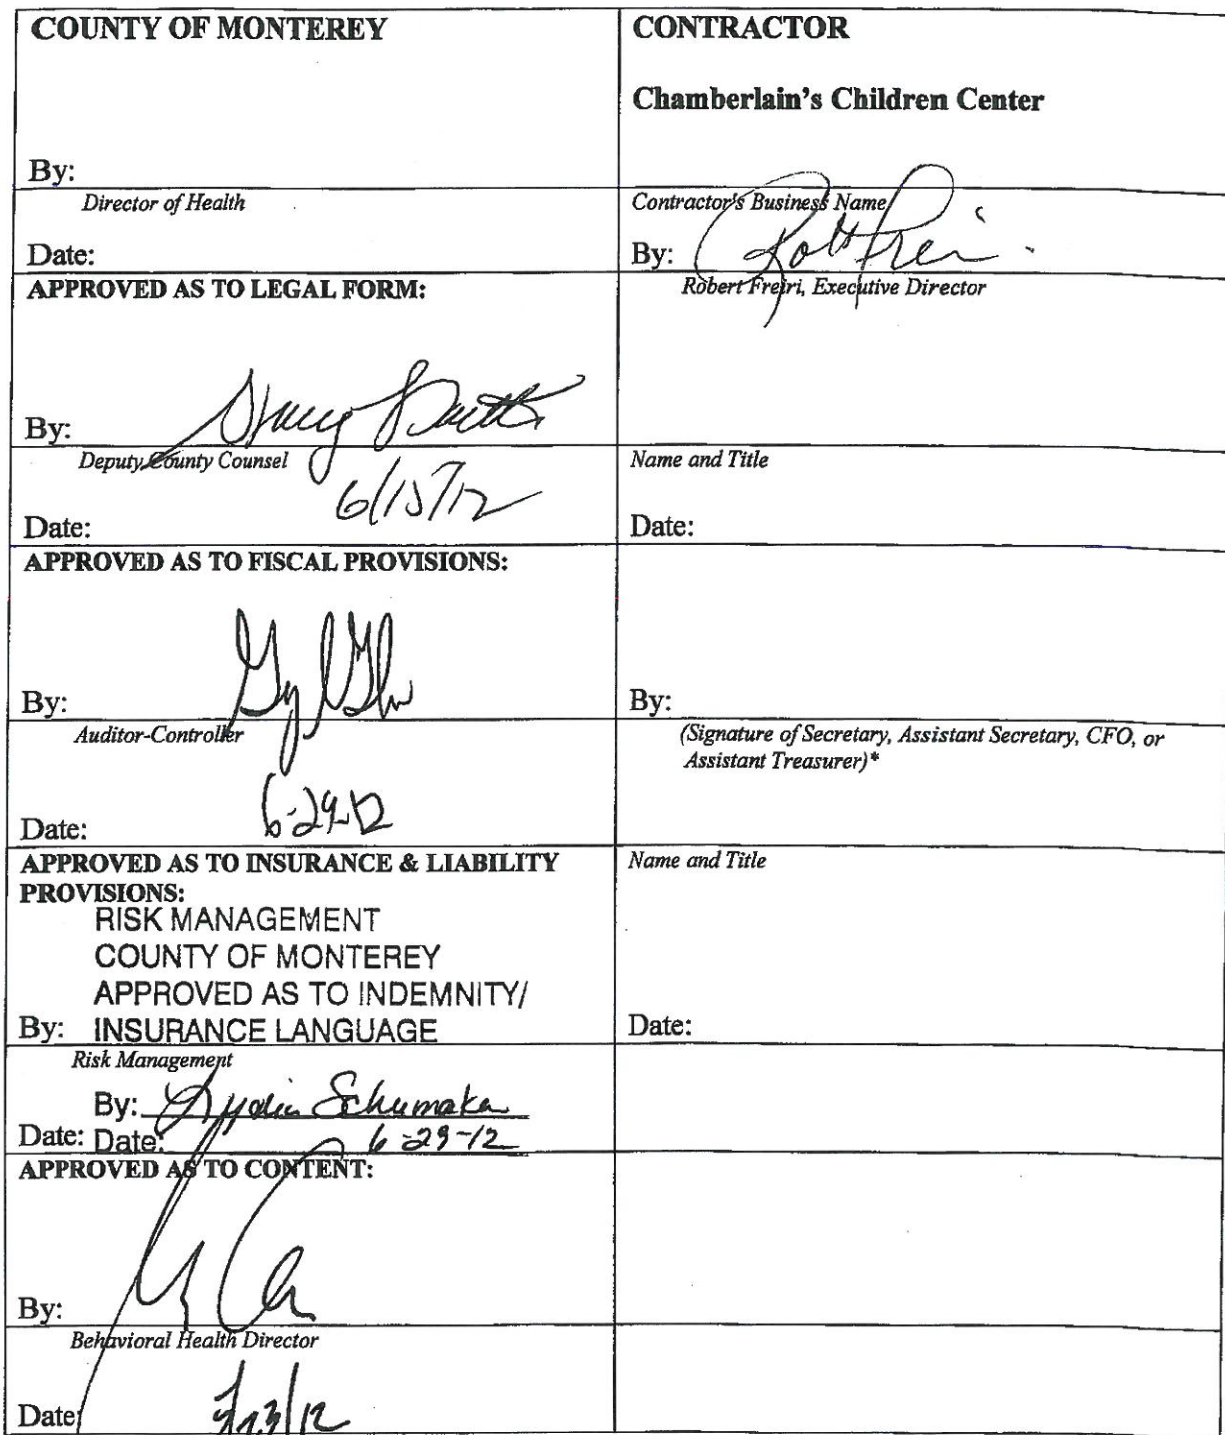 COUNTY OF MONTEREY
By:
Director of Health
Date:
APPROVED AS TO LEGAL FORM:
By:
Deputy County Counsel
6/15/12
Date:
APPROVED AS TO FISCAL PROVISIONS:
By:
Auditor-Controller
6-29-12
Date:
APPROVED AS TO INSURANCE & LIABILITY
PROVISIONS:
RISK MANAGEMENT
COUNTY OF MONTEREY
APPROVED AS TO INDEMNITY/
By: INSURANCE LANGUAGE
Risk Management
By:
Date: Date: 6-29-12
APPROVED AS TO CONTENT:
By:
Behavioral Health Director
Date:
CONTRACTOR
Chamberlain's Children Center
Contractor's Business Name
By:
Robert Freiri, Executive Director
Name and Title
Date:
By:
(Signature of Secretary, Assistant Secretary, CFO, or
Assistant Treasurer)*
Name and Title
Date: